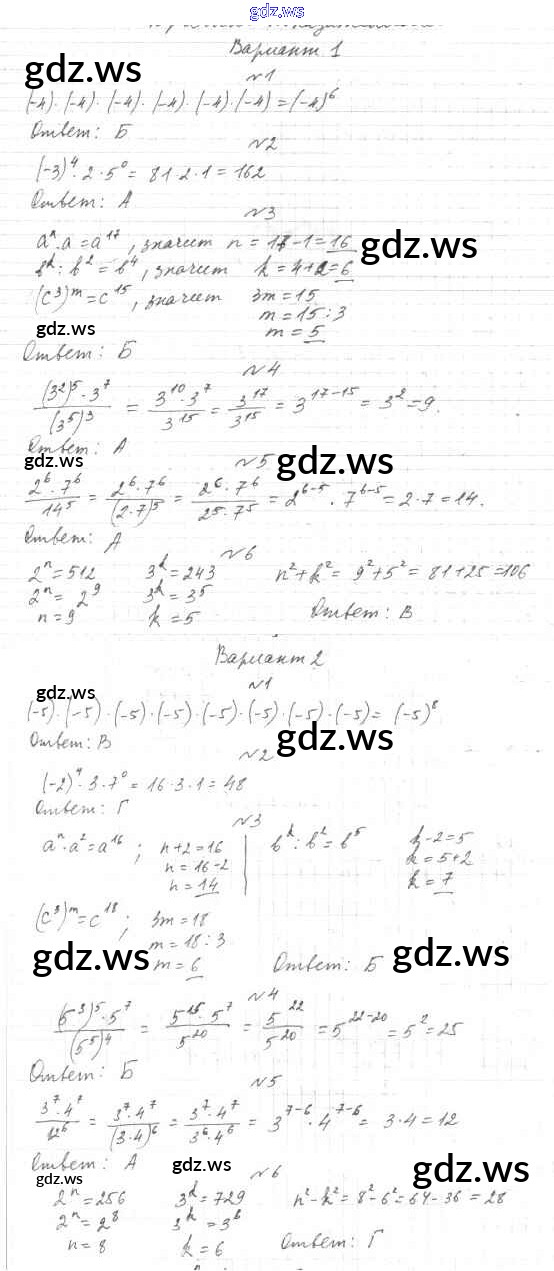 gdz.ws
Вариант 1
gdz.ws
№1
(-4)·(-4)·(-4)·(-4)·(-4)·(-4)=(-4)⁶
Ответ: Б
№2
(-3)⁴·2·5⁰= 81·2·1=162
Ответ: А
№3
aⁿ·a=a¹⁷, значит n=17-1=16
gdz.ws
bᵏ:b²=b⁴, значит k=4+2=6
(c³)ᵐ=c¹⁵, значит 3m=15
m=15:3
gdz.ws
m=5
Ответ: Б
№4
(3²)⁵·3⁷/(3⁵)³ = 3¹⁰·3⁷/3¹⁵ = 3¹⁷/3¹⁵ = 3¹⁷⁻¹⁵ = 3² = 9.
Ответ: А
gdz.ws
gdz.ws
№5
2⁶·7⁶/14⁵ = 2⁶·7⁶/(2·7)⁵ = 2⁶·7⁶/25·7⁵ = 2⁶⁻⁵·7⁶⁻⁵=2·7=14.
Ответ: А
№6
2ⁿ=512 3ᵏ=243 n²+k²= 9²+5²= 81+25=106
2ⁿ= 2⁹ 3ᵏ=3⁵
n=9 k=5 Ответ: В
Вариант 2
gdz.ws
№1
(-5)·(-5)·(-5)·(-5)·(-5)·(-5)·(-5)·(-5)= (-5)⁸
gdz.ws
Ответ: В
№2
(-2)⁴·3·7⁰= 16·3·1=48
Ответ: Г
№3
aⁿ·a²=a¹⁶; n+2=16 bᵏ:b²=b⁵ k-2=5
n=16-2 k=5+2
n=14 k=7
(c³)ᵐ=c¹⁸; 3m=18
m=18:3
gdz.ws
m=6 Ответ: Б
gdz.ws
№4
(5³)⁵·5⁷/(5⁵)⁴ = 5¹⁵·5⁷/5²⁰ = 5²²/5²⁰ = 5²²⁻²⁰ = 5²=25
Ответ: Б
№5
3⁷·4⁷/12⁶ = 3⁷·4⁷/(3·4)⁶ = 3⁷·4⁷/3⁶·4⁶ = 3⁷⁻⁶·4⁷⁻⁶= 3·4=12
Ответ: А
gdz.ws
gdz.ws
gdz.ws
№6
2ⁿ=256 3ᵏ=729 n²-k²=8²-6²=64-36=28
2ⁿ=2⁸ 3ᵏ=3⁶
n=8 k=6 Ответ: Г